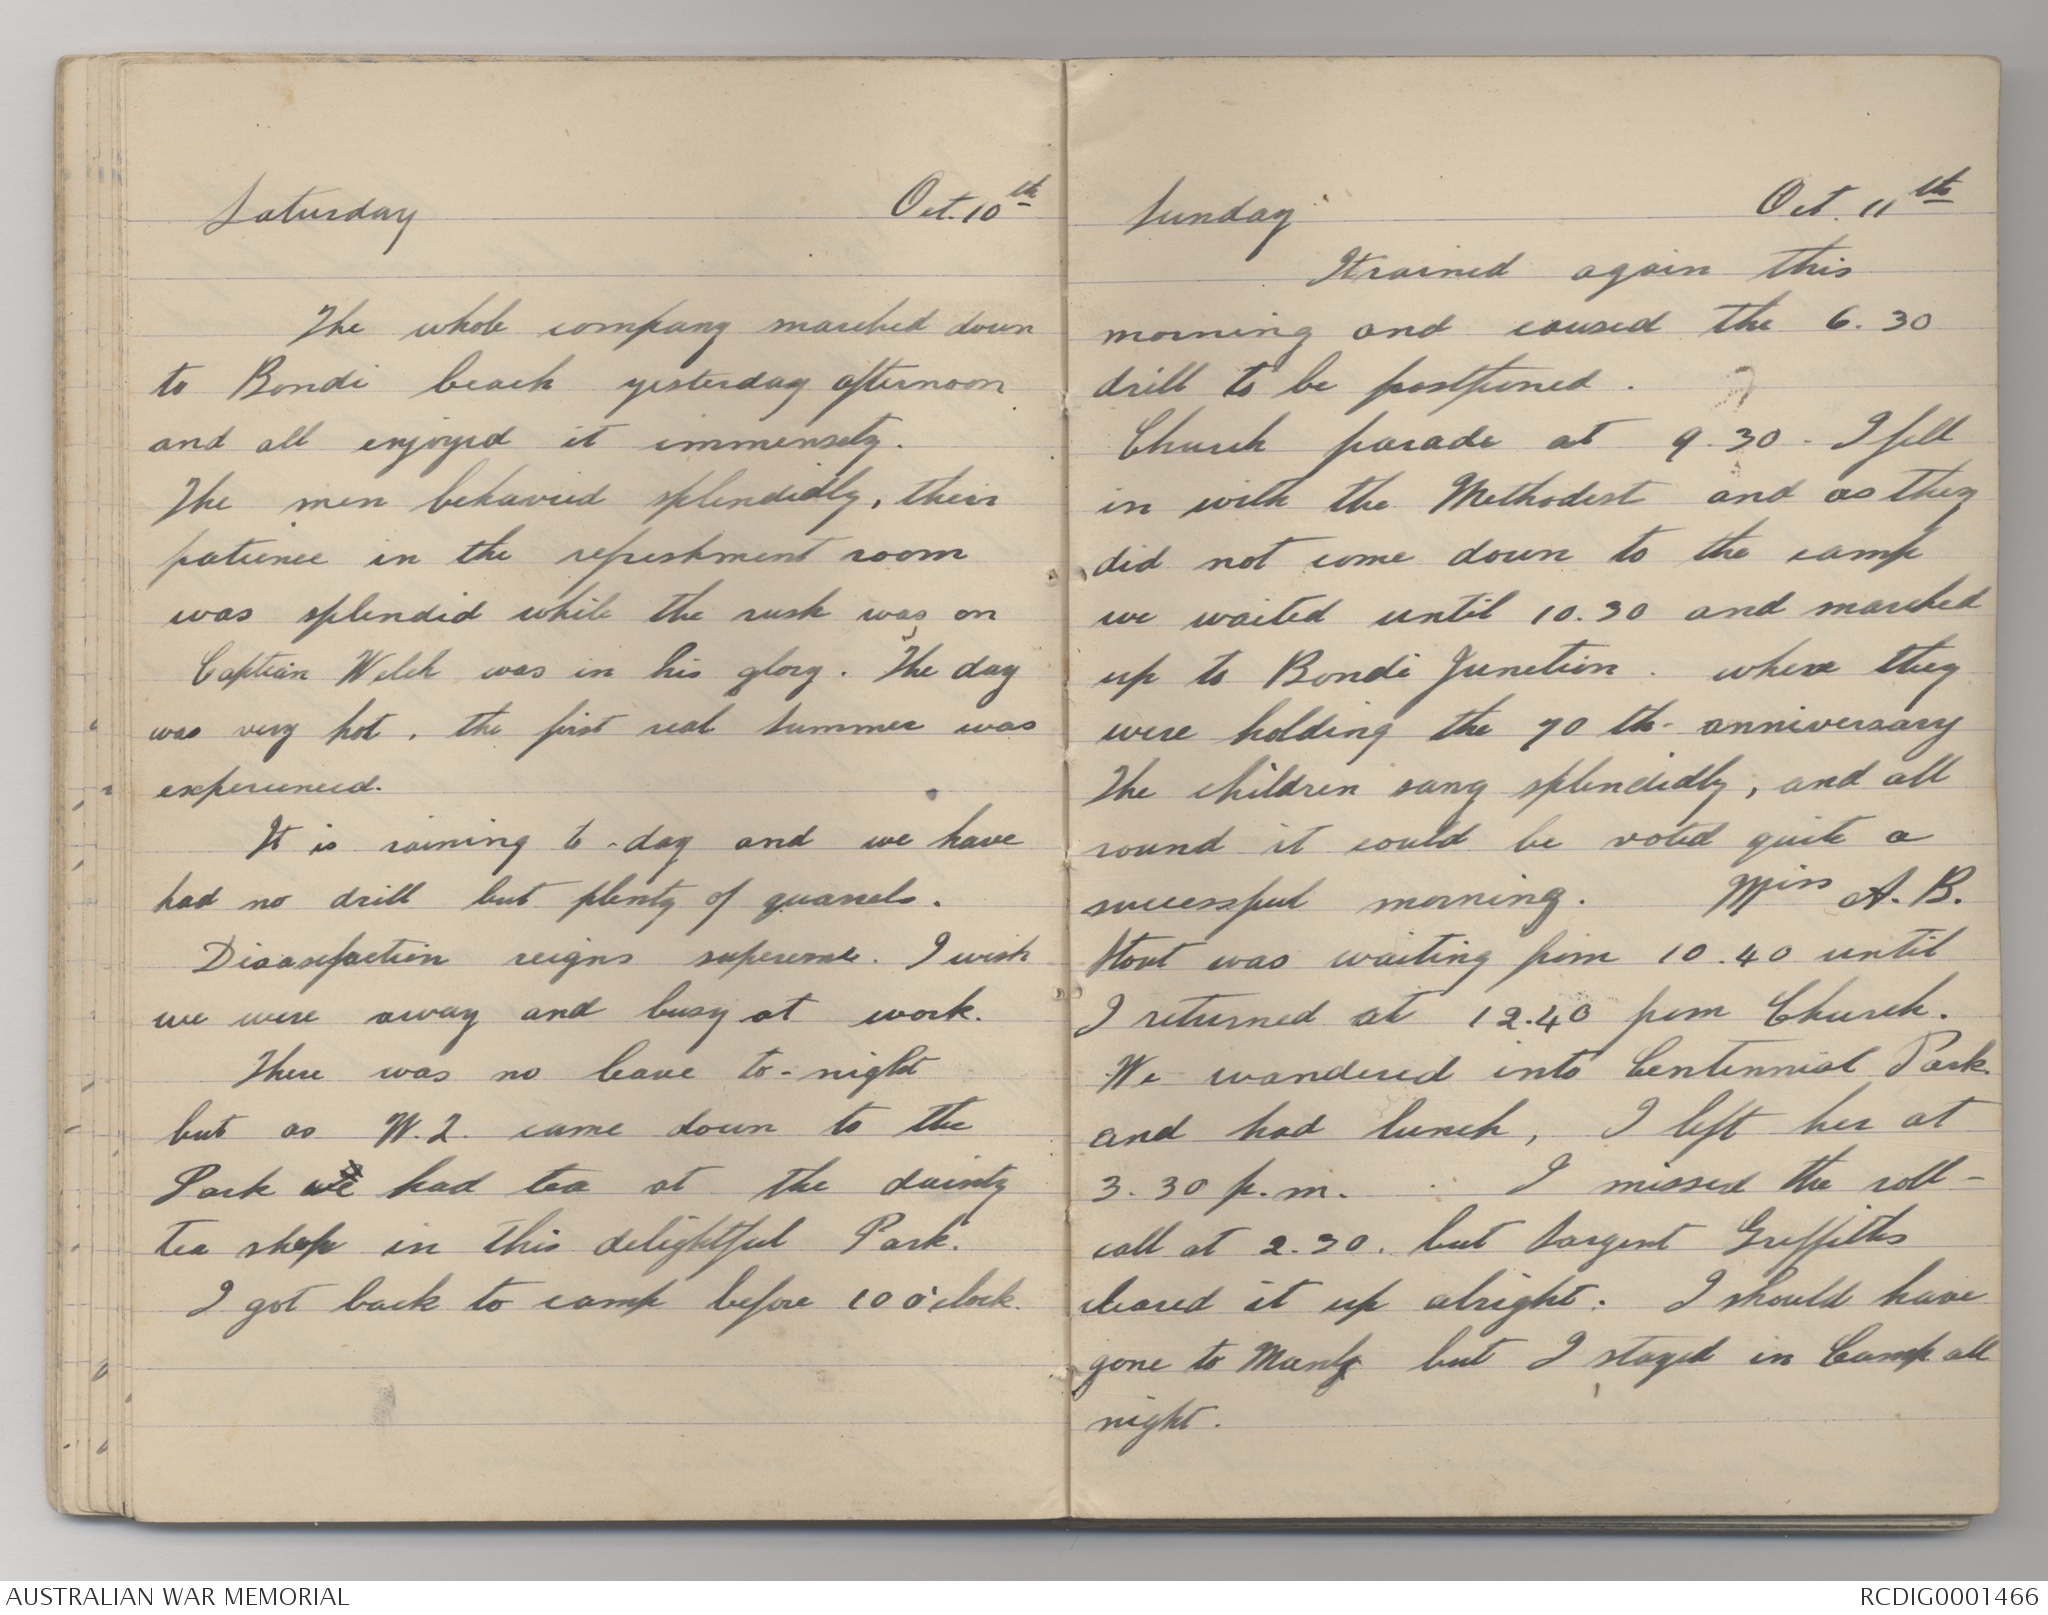 Saturday Oct. 10th
The whole company marched down
to Bondi beach yesterday afternoon
and all enjoyed it immensely.
The men behavied splendidly, their
patience in the refreshment room
was splendid while the rush was on
Captian Welch was in his glory. The day
was very hot, the first real summer was
experienced.
It is raining to-day and we have
had no drill but plenty of quarrels.
Disasefaction reigns supereme. I wish
we were away and busy at work.
There was no leave to-night
but as W.I. came down to the
Park we had tea at the dainty
tea shop in this delightful Park.
I got back to camp before 10 o'clock.
Sunday Oct. 11th
It rained again this
morning and caused the 6.30
drill to be postponed.
Church parade at 9.30. I fell
in with the Methodist and as they
did not come down to the camp
we waited until 10.30 and marched
up to Bondi Junction. where they
were holding the 70th anniversary
The children sang splendidly, and all
round it could be voted quite a
successful morning. Miss A.B.
Stout was waiting from 10.40 until
I returned at 12.40 from Church.
We wandered into Centennial Park.
and had lunch, I left her at
3.30 p.m. I missed the roll-
call at 2.30. but Sargent Griffiths
cleared it up alright. I should have
gone to Manly but I stayed in Camp all
night.
AUSTRALIAN WAR MEMORIAL RCDIG0001466